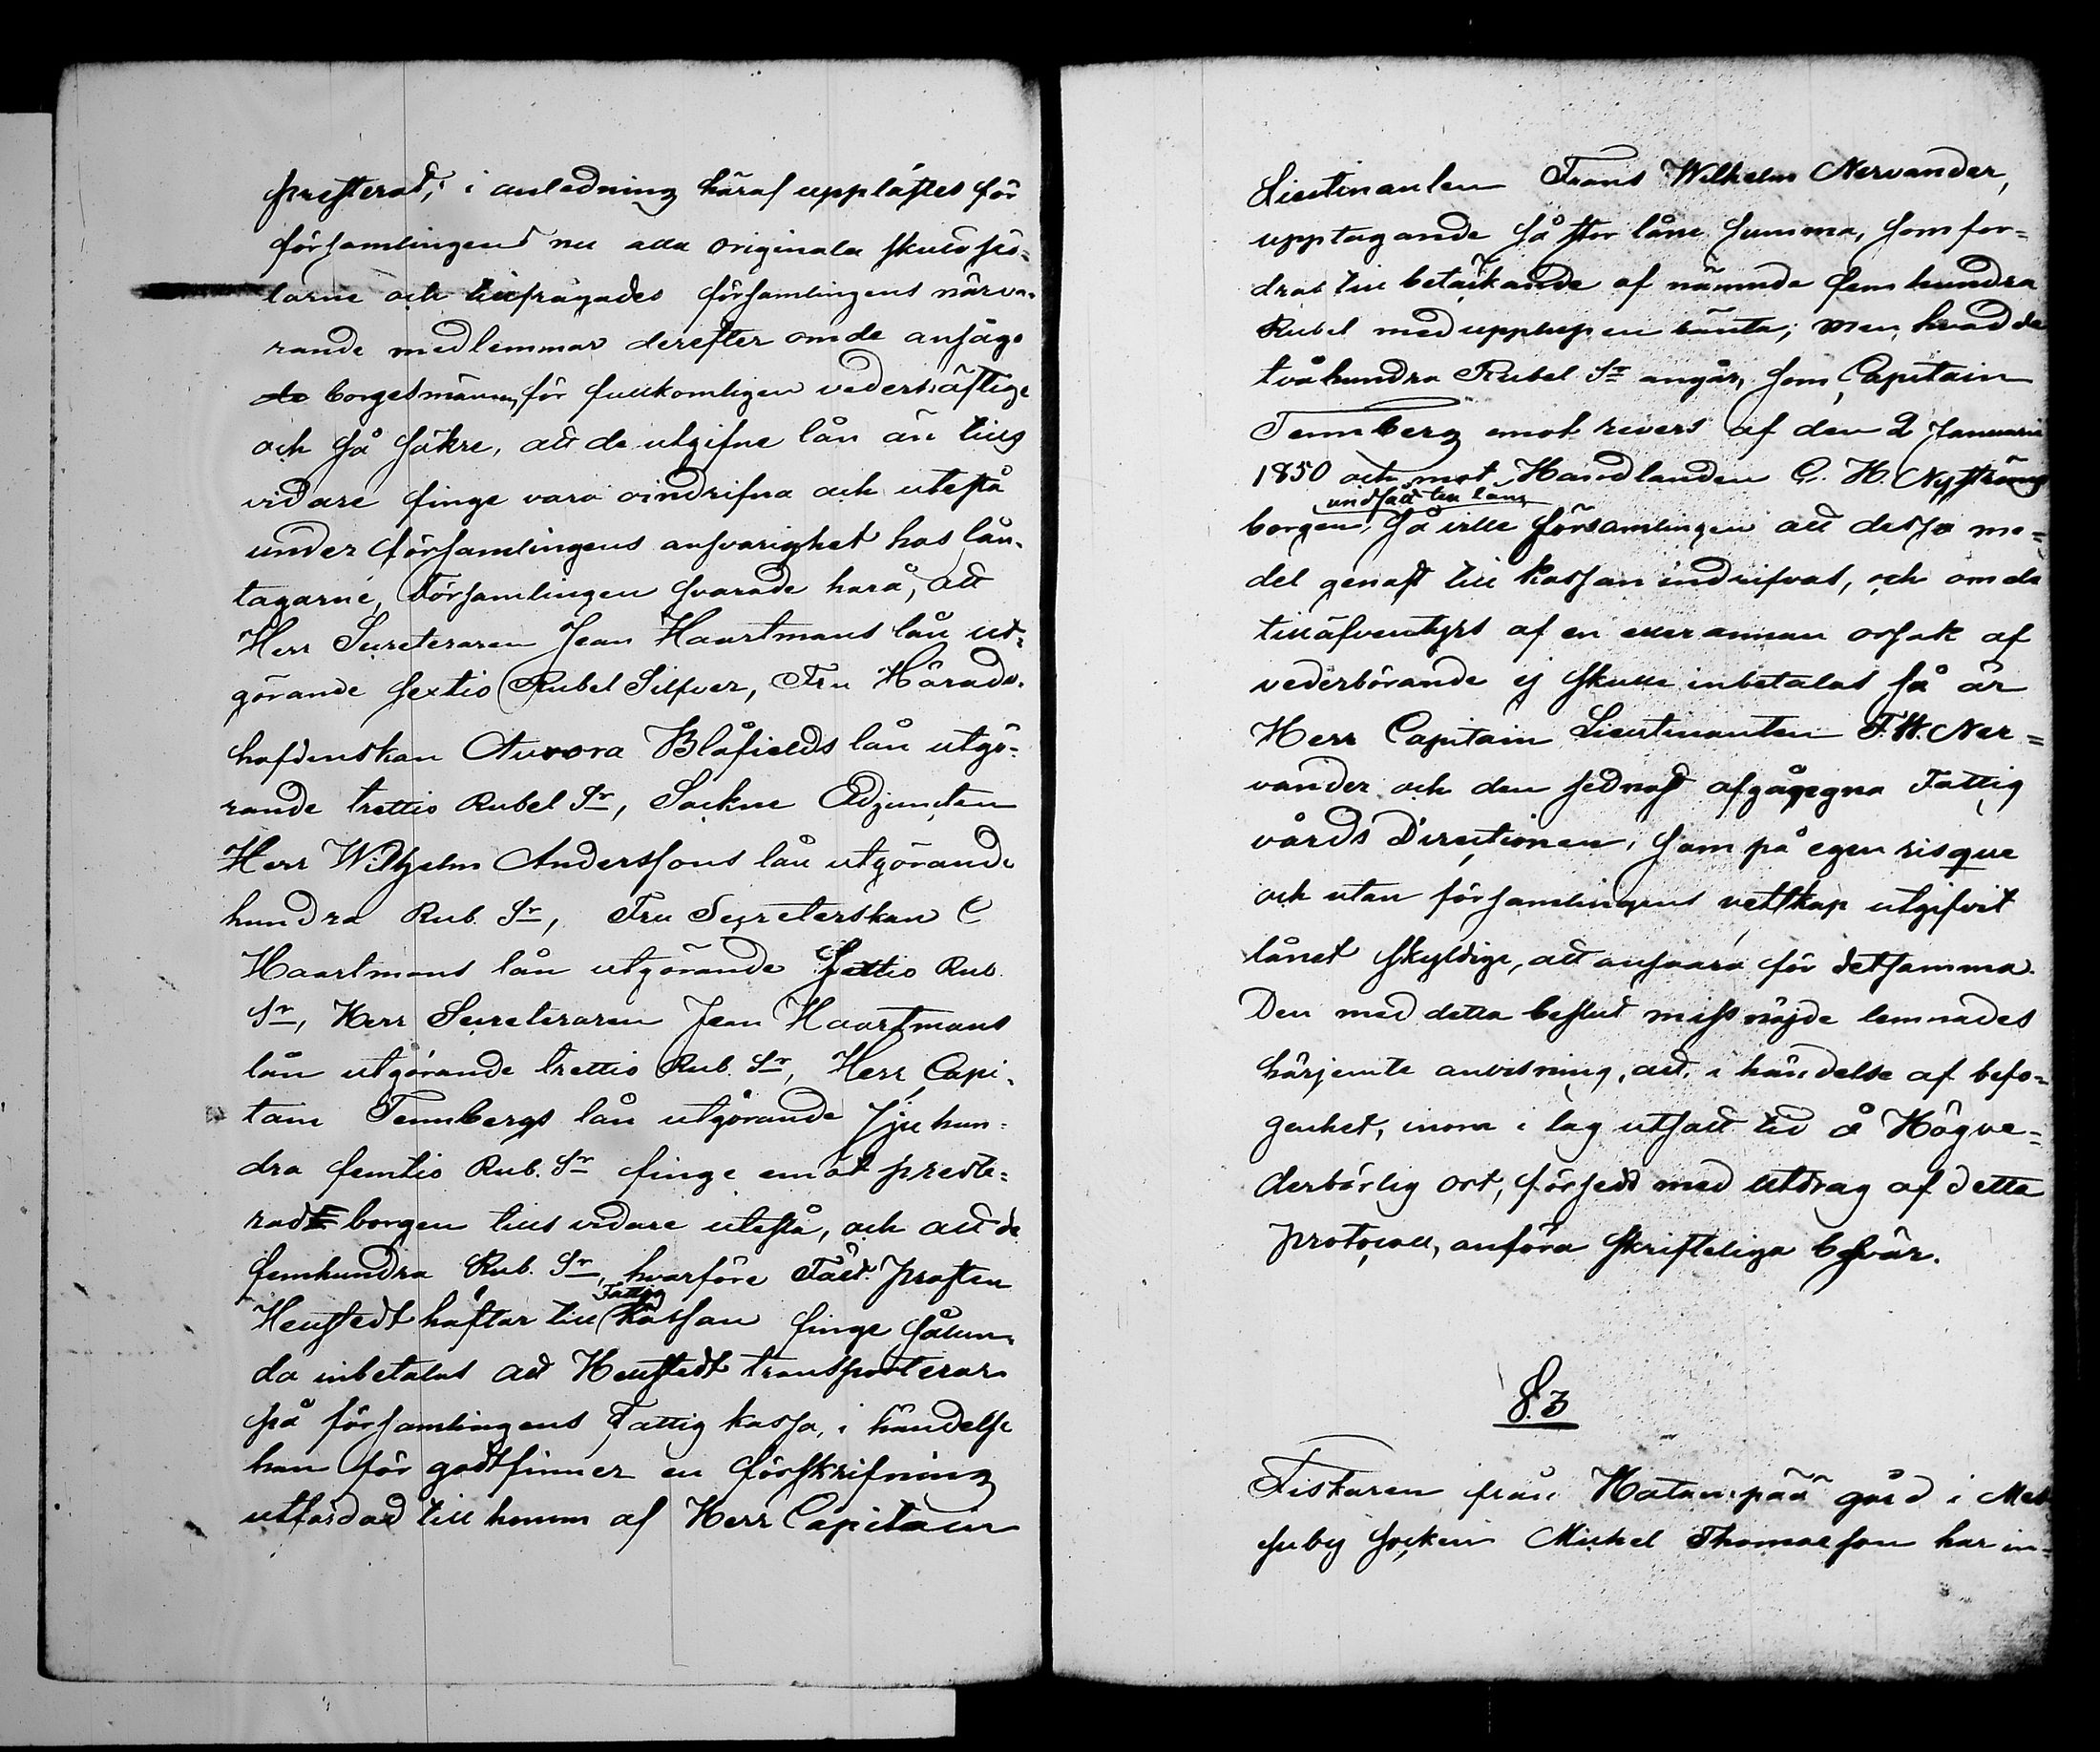 presterat; i anledning häraf upplästes för
församlingens nu alla originala skuldsed=
larne och tillfrågades församlingens närva=
rande medlemmar derefter om de ansågo
de borgesmännen för fullkomligen vederhäftige
och så säkre, att de utgifne lån än tills
vidare finge vara oindrifna och utestå
under församlingens ansvarighet hos lån=
tagarne, Församlingen svarade härå, att
Herr Secreteraren Jean Haartmans lån ut=
görande sextio Rubel Silfver, Fru Härads=
höfdenskan Aurora Blåfields lån utgö=
rande trettio Rubel Sr, Sockne Adjuncten
Herr Wilhelm Anderssons lån utgörande
hundra Rub. Sr, Fru Secreterskan C
Haartmans lån utgörande Sextio Rub.
Sr, Herr Secreteraren Jean Haartmans
lån utgörande trettio Rub. Sr, Herr Capi=
tain Tennbergs lån utgörande sju hun=
dra femtio Rub. Sr finge emot preste=
rad borgen tills vidare utestå, och att de
femhundra Rub. Sr, hvarföre Fält Prosten
Heustedt häftar till Fattig kassan finge sålun=
da inbetalas att Heustedt transporterar
på församlingens Fattig kassa, i händelse
han för godtfinner en förskrifning
utfärdad till honom af Herr Capitain
Lieutinanten Frans Wilhelm Nervander,
upptagande så stor låne summa, som for=
dras till betäckande af nämnde fem hundra
Rubel med upplupen ränta; men hvad de
tvåhundra Rubel Sr angår, som Capitain
Tennberg emot revers af den 2 Januarii
1850 och mot Handlanden C. H. Nyströms
borgen undfått till låns, så ville församlingen att desse me=
del genast till kassan indrifvas, och om de
tilläfventyrs af en eller annan orsak af
vederbörande ej skulle inbetalas så är
Herr Capitain Lieutinanten F. W. Ner=
vander och den sednast afgågegna Fattig
vårds Directionen, som på egen risque
och utan församlingens vettskap utgifvit
lånet skyldige, att ansvara för detsamma.
Den med detta beslut missnöjde lemnades
härjemte anvisning, att, i händelse af befo=
genhet, inom i lag utsatt tid å Högve=
derbörlig ort, försedd med utdrag af detta
Protocoll, anföra skrifteliga besvär.
§. 3
Fiskaren från Hatanpää gård i Mes
suby Socken Michel Thomasson har in=